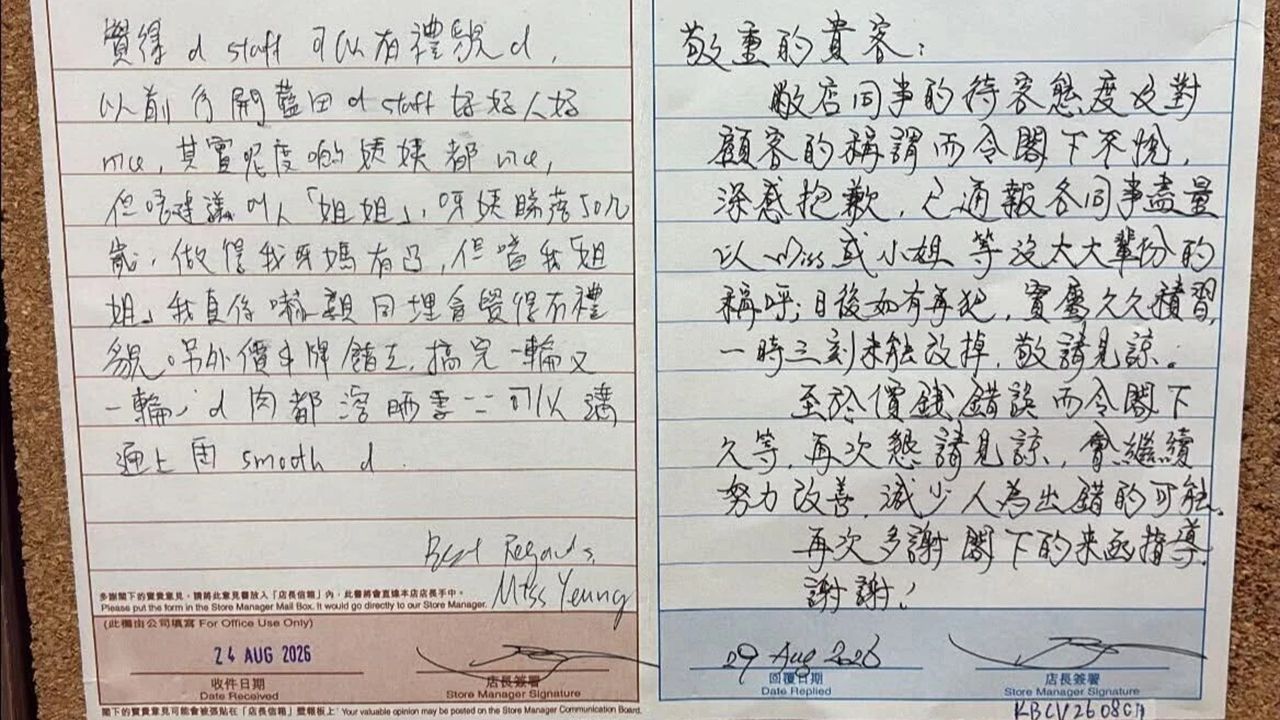 覺得 d staff 可以有禮貌 d，
以前行開藍田 d staff 好好人好
nice，其實呢度啲姨姨都 nice，
但係建議叫人「姐姐」，呀姨睇落50幾
歲，做得我呀媽有凸，但當我「姐
姐」我真係嚇親同埋會覺得冇禮
貌。另外價錢牌錯左，搞完一輪又
一輪，d 肉都溶晒雪== 可以溝
通上面 smooth d.
Best Regards,
Miss Yeung
多謝閣下的寶貴意見，請將此意見書放入「店長信箱」內，此書將會直達本店店長手中。
Please put the form in the Store Manager Mail Box. It would go directly to our Store Manager.
(此欄由公司填寫 For Office Use Only)
24 AUG 2026
收件日期
Date Received
店長簽署
Store Manager Signature
閣下的寶貴意見可能會被張貼在「店長信箱」壁報板上 Your valuable opinion may be posted on the Store Manager Communication Board.
敬重的貴客：
敝店同事的待客態度及對
顧客的稱謂而令閣下不悅，
深感抱歉，已通報各同事盡量
以 Miss 或小姐等沒太大輩份的
稱呼；日後如有再犯，實屬久久積習，
一時三刻未能改掉，敬請見諒。
至於價錢錯誤而令閣下
久等，再次懇請見諒，會繼續
努力改善，減少人為出錯的可能。
再次多謝閣下的來函指導
謝謝！
29 Aug 2026
回覆日期
Date Replied
店長簽署
Store Manager Signature